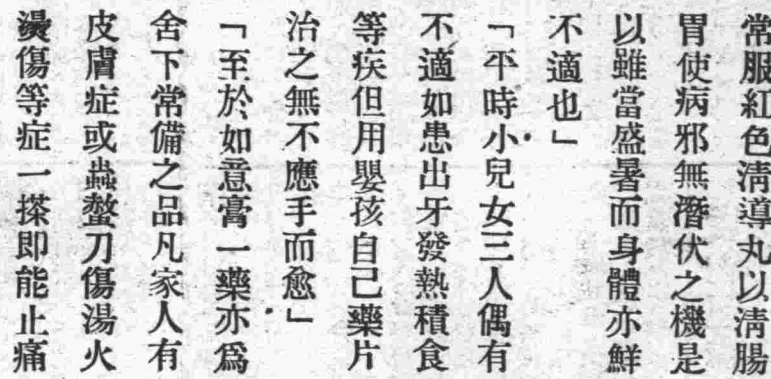 常服紅色清導丸以清腸
胃使病邪無潛伏之機是
以雖當盛暑而身體亦鮮
不適也」
「平時小兒女三人偶有
不適如患出牙發熱積食
等疾但用嬰孩自己藥片
治之無不應手而愈」
「至於如意膏一藥亦爲
舍下常備之品凡家人有
皮膚症或蟲螫刀傷湯火
燙傷等症一搽即能止痛